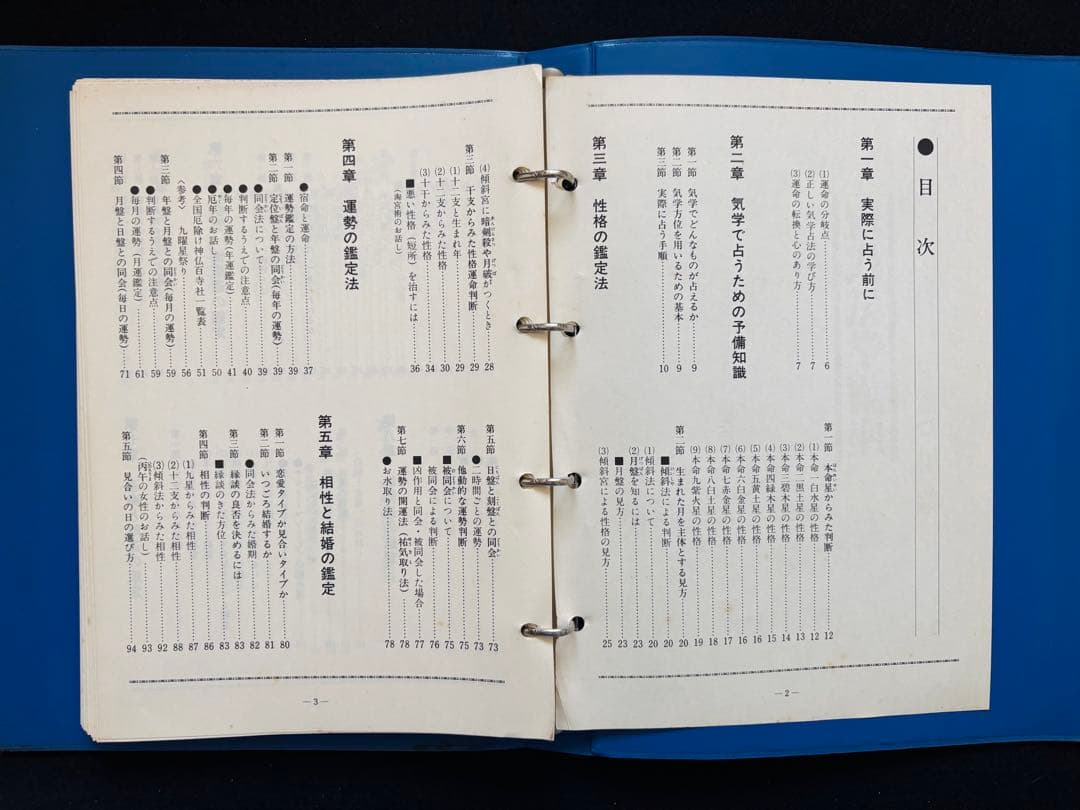 ●目次
第一章 実際に占う前に
(1)運命の分岐点……6
(2)正しい気学占法の学び方……7
(3)運命の転換と心のあり方……7
第二章 気学で占うための予備知識
第一節 気学でどんなものが占えるか……9
第二節 気学方位を用いるための基本……9
第三節 実際に占う手順……10
第三章 性格の鑑定法
第一節 本命星からみた判断……12
(1)本命一白水星の性格……12
(2)本命二黒土星の性格……13
(3)本命三碧木星の性格……14
(4)本命四緑木星の性格……14
(5)本命五黄土星の性格……15
(6)本命六白金星の性格……16
(7)本命七赤金星の性格……16
(8)本命八白土星の性格……17
(9)本命九紫火星の性格……18
第二節 生まれた月を主体とする見方……19
■傾斜法による判断……20
(1)傾斜法について……20
(2)月盤を知るには……20
■月盤の見方……23
(3)傾斜宮による性格の見方……25
—2—
(4)傾斜宮に暗剣殺や月破がつくとき……28
第三節 干支からみた性格運命判断……29
(1)十二支と生まれ年……29
(2)十二支からみた性格……30
(3)十干からみた性格……34
■悪い性格(短所)を治すには……36
(淘宮術のお話し)
第四章 運勢の鑑定法
●宿命と運命……37
第一節 運勢鑑定の方法……39
第二節 定位盤と年盤の同会(毎年の運勢)……39
●同会法について……39
●判断するうえでの注意点……40
●毎年の運勢(年運鑑定)……41
●厄年のお話し……50
●全国厄除け神仏百寺社一覧表……51
〈参考〉 九曜星祭り……56
第三節 年盤と月盤との同会(毎月の運勢)……59
●判断するうえでの注意点……59
●毎月の運勢(月運鑑定)……61
第四節 月盤と日盤との同会(毎日の運勢)……71
第五節 日盤と刻盤との同会……73
●二時間ごとの運勢……73
第六節 他動的な運勢判断……75
■被同会について……75
被同会による判断……76
■凶作用と同会・被同会した場合……77
第七節 運勢の開運法(祐気取り法)……78
●お水取り法……78
第五章 相性と結婚の鑑定
第一節 恋愛タイプか見合いタイプか……80
第二節 いつごろ結婚するか……81
●同会法からみた婚期……82
第三節 縁談の良否を決めるには……83
■縁談のきた方位……83
第四節 相性の判断……86
(1)九星からみた相性……87
(2)十二支からみた相性……88
(3)傾斜法からみた相性……92
(丙午の女性のお話し)……93
第五節 見合いの日の選び方……94
—3—